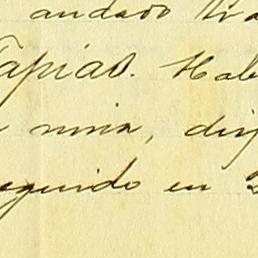 andado
Tapias. Hab
nina, dij
eguido en